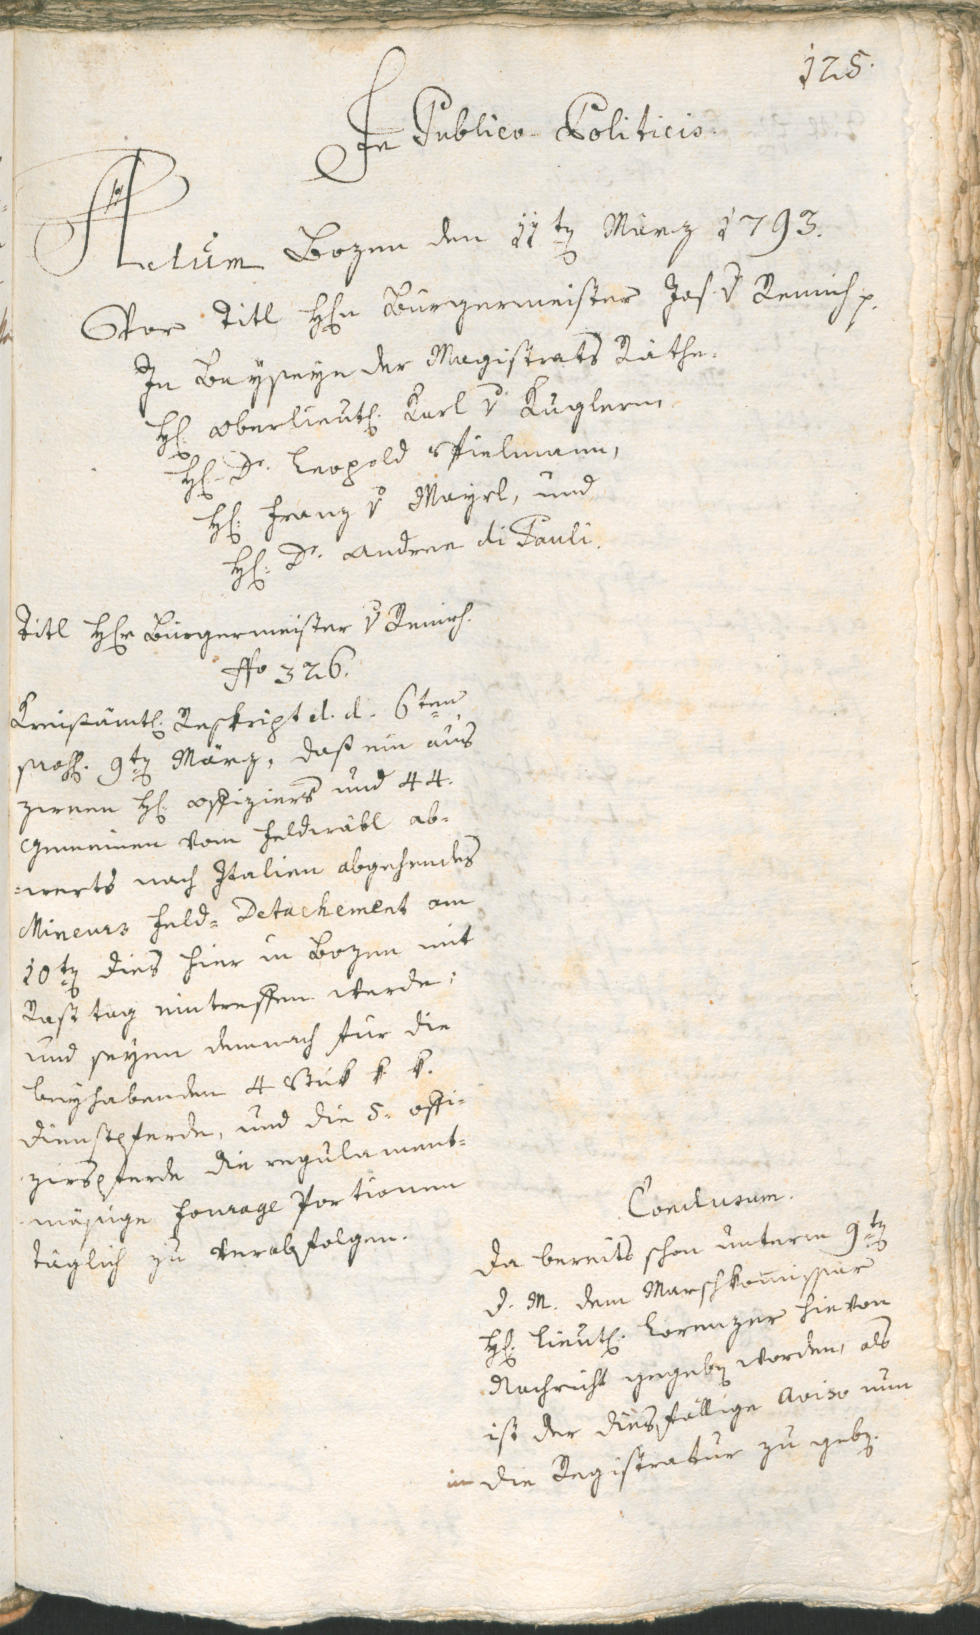 125.
In Publico-Politicis.
Actum Bozen den 11ten März 1793.
Vor Titl H[err]n Bürgermeister Jos. v Remich p.
In Beyseyn der Magistrats Räthe.
H[err] Oberlieut[enant] Karl v Kuglern
H[err] Dr. Leopold Stielmann,
H[err] Franz v Mayrl, und
H[err] Dr. Andree di Pauli.
Titl H[err] Bürgermeister v Remich.
No 326.
Kreisämtl. Reskript d. d. 6ten
präs. 9ten März, daß ein aus
zween H[erren] Offiziers und 44.
Gemeinen vom Feldwäbl ab-
=werts nach Italien abgehendes
Mineurs Feld-Detachement am
10ten dies hier in Bozen mit
Rasttag eintreffen werde;
und seyen demnach für die
beyhabenden 4 Stük k. k.
Dienstpferde, und die 5. Offi-
zirspferde die regulament-
mäßige Fourage Portionen
täglich zu verabfolgen.
Conclusum.
Da bereits schon unterm 9ten
d. M. dem Marschkommissär
H[errn] Lieut. Lorenzer hievon
Nachricht gegeben worden, als
ist der diesfällige Aviso nun
in die Registratur zu geben.